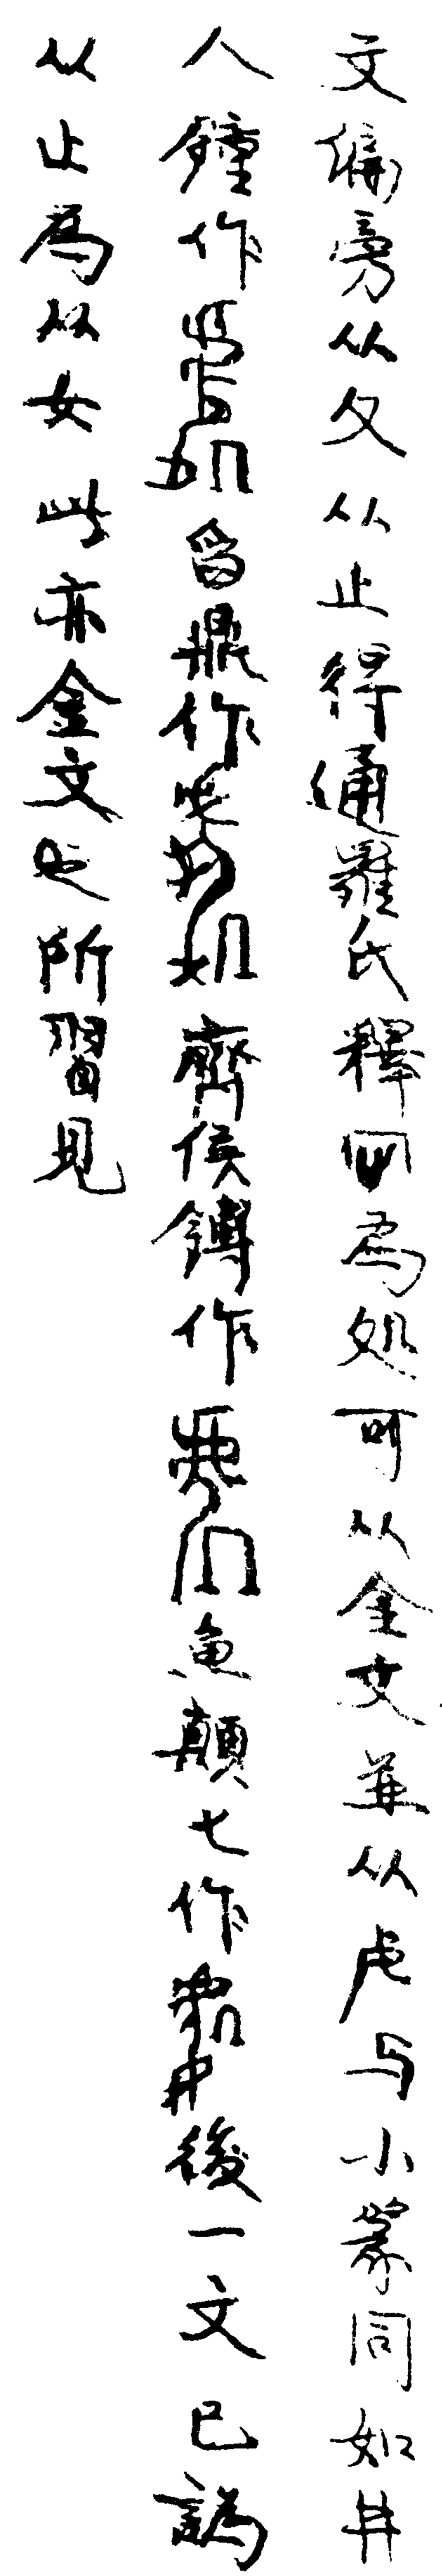 文偏旁从夂从止得通羅氏釋為処可从金文並从虍与小篆同如井
人鐘作曶鼎作齊侯鎛作魚顛匕作後一文已譌
从止為从女此亦金文之所習見